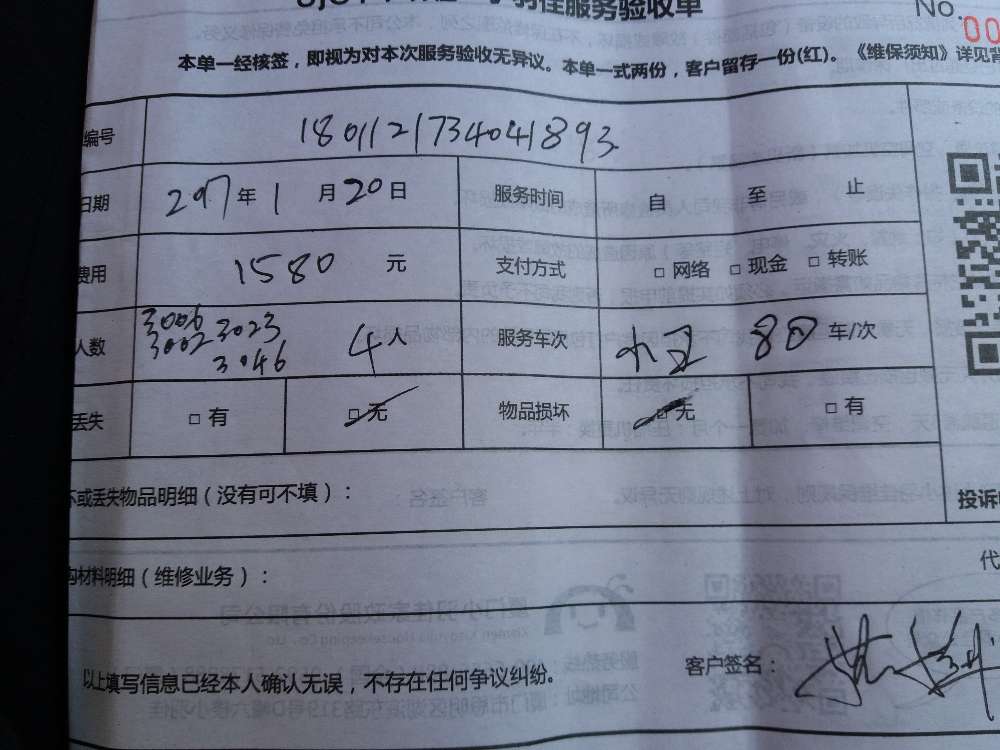 羽佳服务验收单
No.
00
本单一经核签，即视为对本次服务验收无异议。本单一式两份，客户留存一份(红)。《维保须知》详见背
编号 180112173404893
日期 2017年1月20日 服务时间 自 至 止
费用 1580 元 支付方式 □ 网络 □ 现金 □ 转账
3006 3023
人数 3002 3046 4人 服务车次 80 车/次
丢失 □ 有 □ 无 物品损坏 □ 无 □ 有
坏或丢失物品明细（没有可不填）：
投诉
购材料明细（维修业务）：
代
客户签名：
以上填写信息已经本人确认无误，不存在任何争议纠纷。